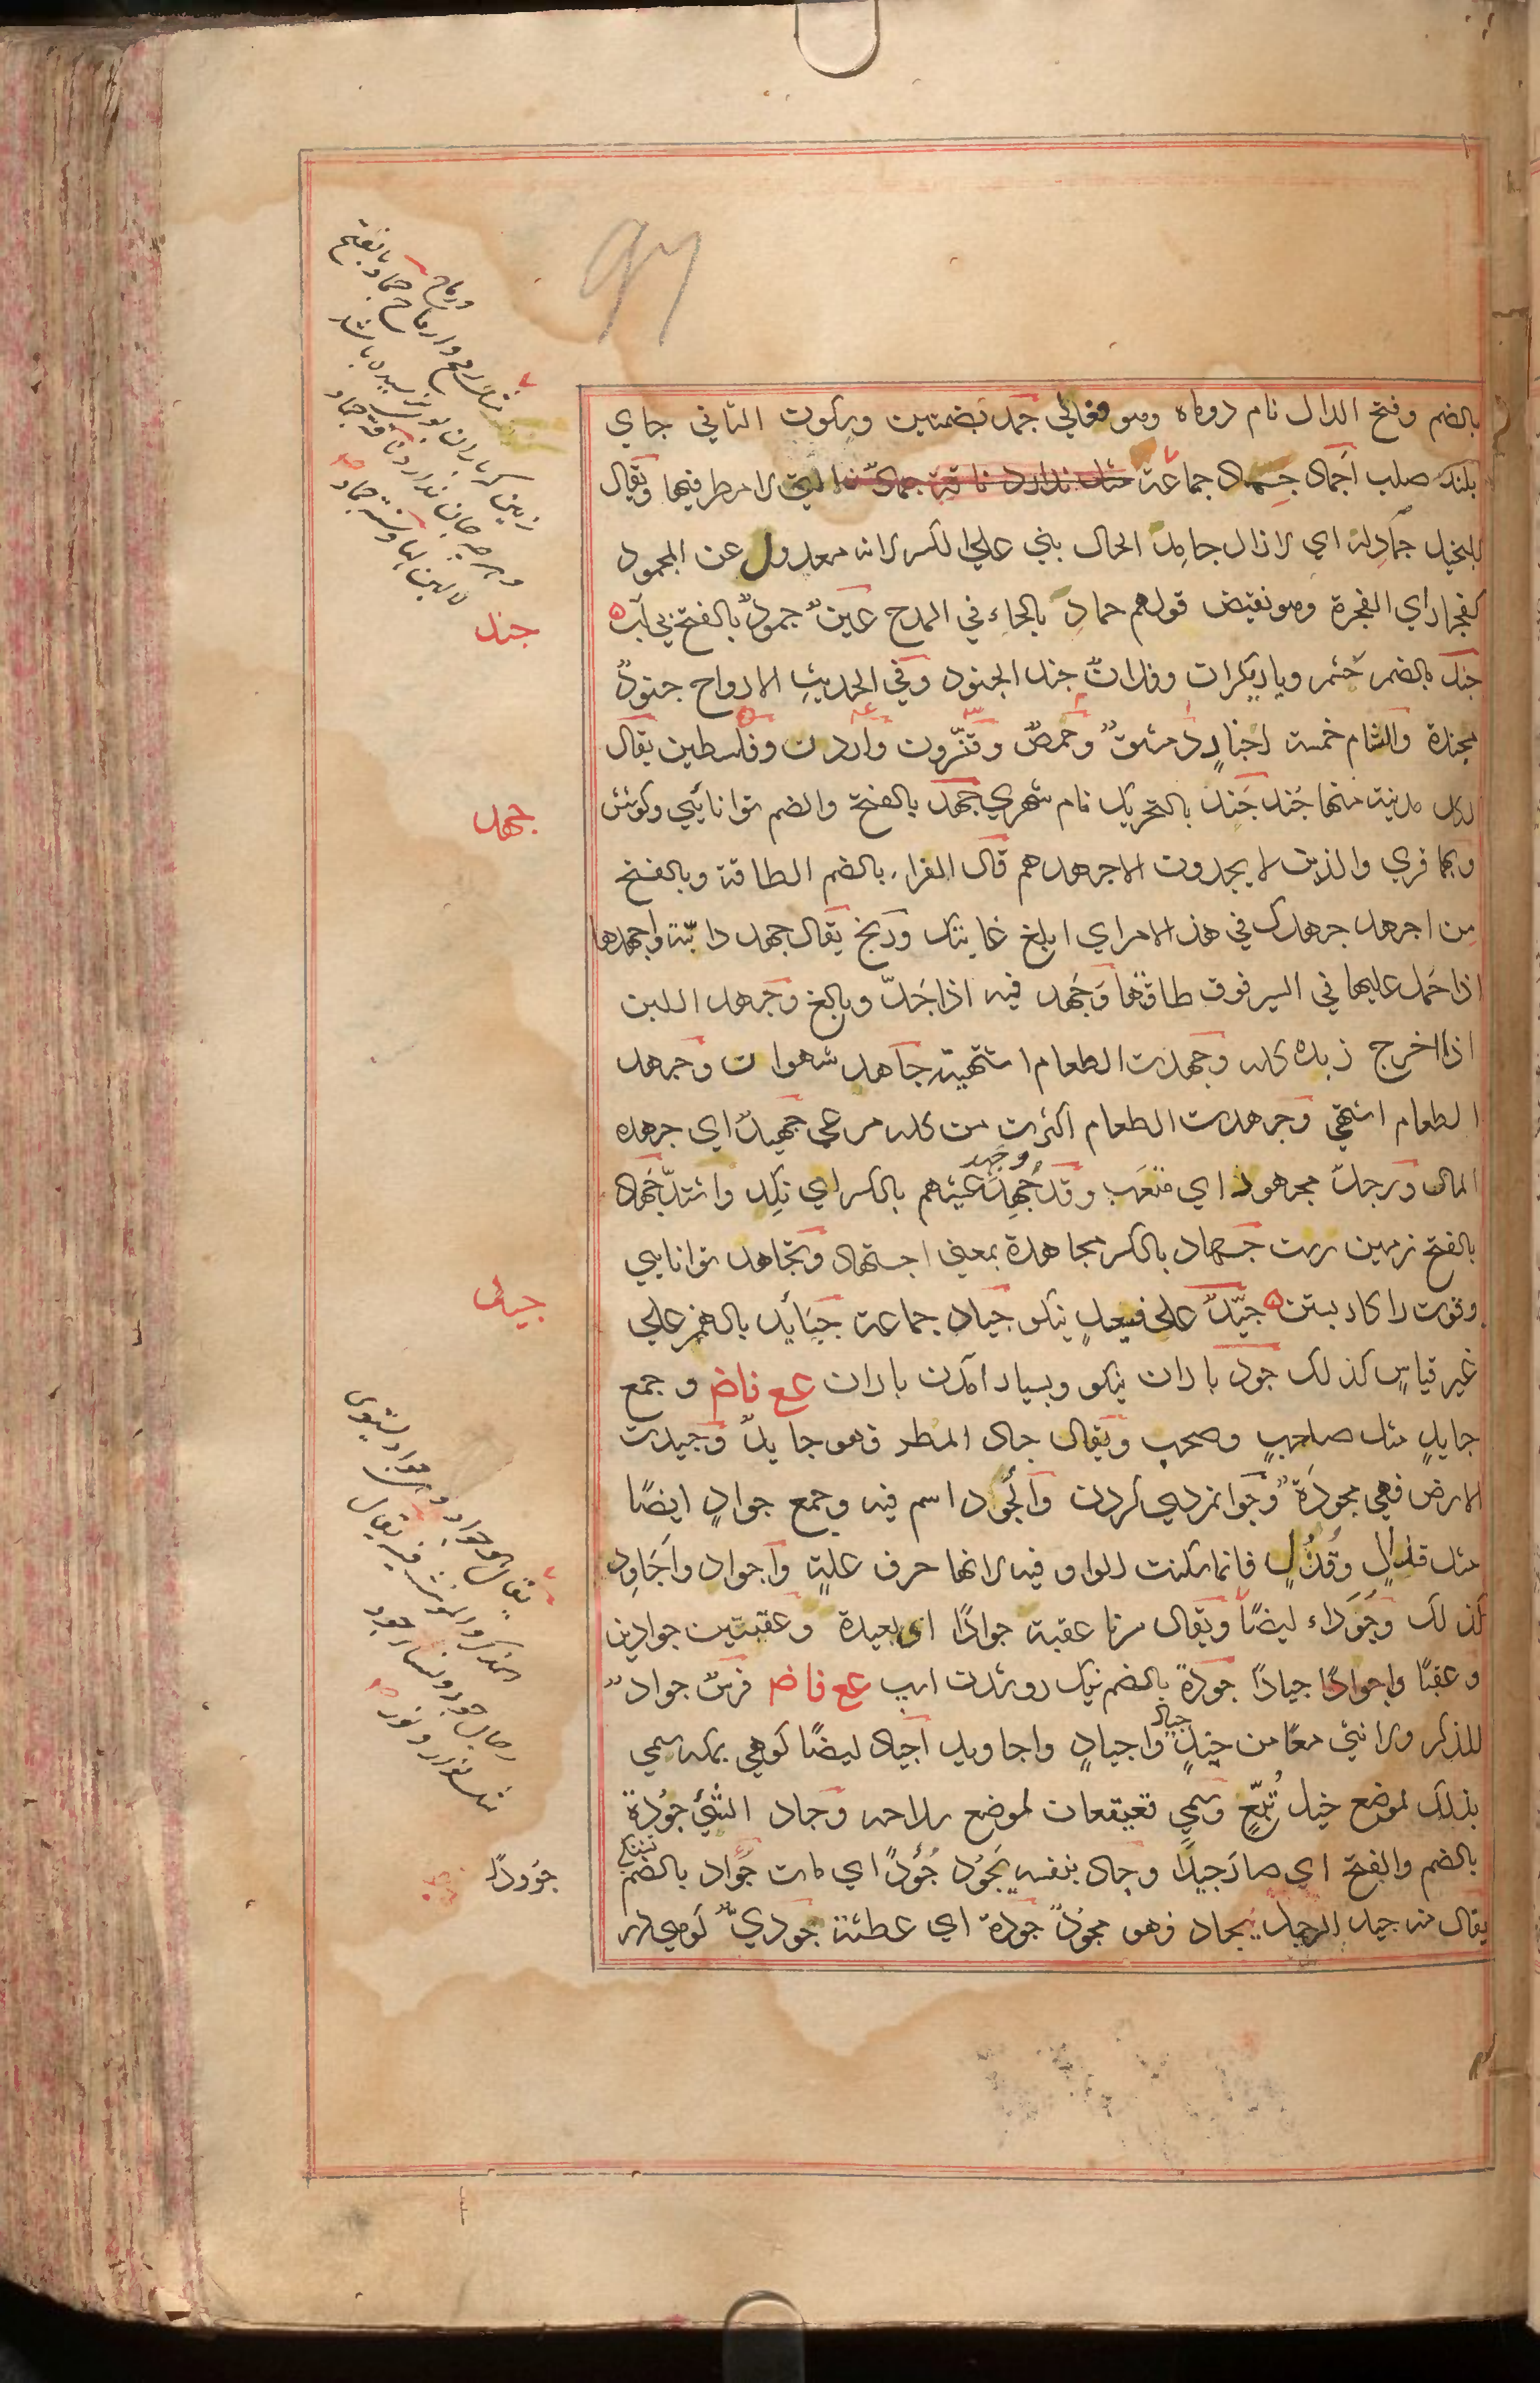 بالضم وفتح الدال نام دوماه وهو فعالى جمد بضمتين وسكون الثاني جاي
بلند صلب اجماد جماد جماعة مثل ندارد ناقة جماد التي لا مطر فيها ويقال
للبخيل جماد له اي لا زال جامد الحال بني علي الكسر لانه معدول عن الجمود
كفجار اي الفجرة وهو نقيض قولهم حماد بالحاء في المدح عين جمود بالفتح بي آب
جند بالضم حشم وياريكران وفلان جند الجنود وفي الحديث الارواح جنود
مجندة والشام خمسة اجناد دمشق وحمص وقنسرون واردن وفلسطين يقال
لكل مدينة منها جند جند بالتحريك نام شهري جهد بالفتح والضم توانائي وكوشش
وبهما قري والذين لا يجدون الا جهدهم قال الفراء بالضم الطاقة وبالفتح
من اجهد جهدك في هذا الامر اي ابلغ غايتك ورنج يقال جهد دابته واجهدها
اذا حمل عليها في السير فوق طاقتها وجهد فيه اذا جد وبالغ وجهد اللبن
اذا اخرج زبده كله وجهدت الطعام اشتهيته جاهد شهوان وجهد
الطعام اشتهي وجهدت الطعام اكثرت من كله مرعي جهيد اي جهده
المال ورجل مجهود اي متعب وقد جهد عيشهم بالكسر اي نكد واشتد جهاد
بالفتح زمين سخت جهاد بالكسر مجاهدة بمعني اجتهاد وتجاهد توانايي
وقوت را كار بستن جيد على فيعل نيكو جياد جماعة جيائد بالهمز علي
غير قياس كذلك جود باران نيكو وبسيار آمدن باران مع ناض و جمع
جايد مثل صاحب وصحب ويقال جاد المطر فهو جايد وجيدت
الارض فهي مجودة وجوانمردي كردن والجود اسم فيه وجمع جواد ايضًا
مثل قذال وقذل فانما سكنت الواو فيه لانها حرف علة واجواد واجاود
كذلك وجوداء ايضًا ويقال سرنا عقبة جوادًا اي بعيدة وعقبتين جوادين
وعقبًا واجوادًا جيادًا جودة بالضم نيك رو شدن اسب مع ناض فرس جواد
للذكر والانثي معًا من خيل جياد واجياد واجاويد اجياد ايضًا كوهي بمكه سمي
بذلك لموضع خيل تبع وسمي قعيقعان لموضع سلاحه وجاد الشئ جودة
بالضم والفتح اي صار جيدًا وجاد بنفسه يجود جؤدًا اي مات جواد بالضم تشنكي
يقال منه جيد الرجل يجاد فهو مجود جودة اي عطشة جودي كوهي
جند
جهد
جيد
جوودًا
مثل رمح وارماح ورماح جماد بالفتح
زمين كه باران بوي نرسيده باشد
وهرچه جان ندارد ناقة جماد
لا لبن لها وسنة جماد